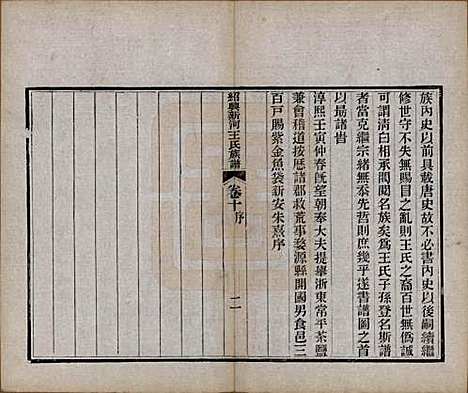 族內史以前具載唐史故不必書內史以後嗣續繼
修世守不失無賜目之亂則王氏之裔百世無僞誠
可謂淸白相承閥閱名族矣爲王氏子孫登名斯譜
者當克繼宗緒無忝先哲則庶幾乎遂書譜圖之首
以勗諸昔
淳熙壬寅仲春旣望朝奉大夫提舉浙東常平茶鹽
兼會稽道按歷諸郡救荒事婺源縣開國男食邑三
百戸賜紫金魚袋新安朱熹序
紹興新河王氏族譜 卷十 序 二